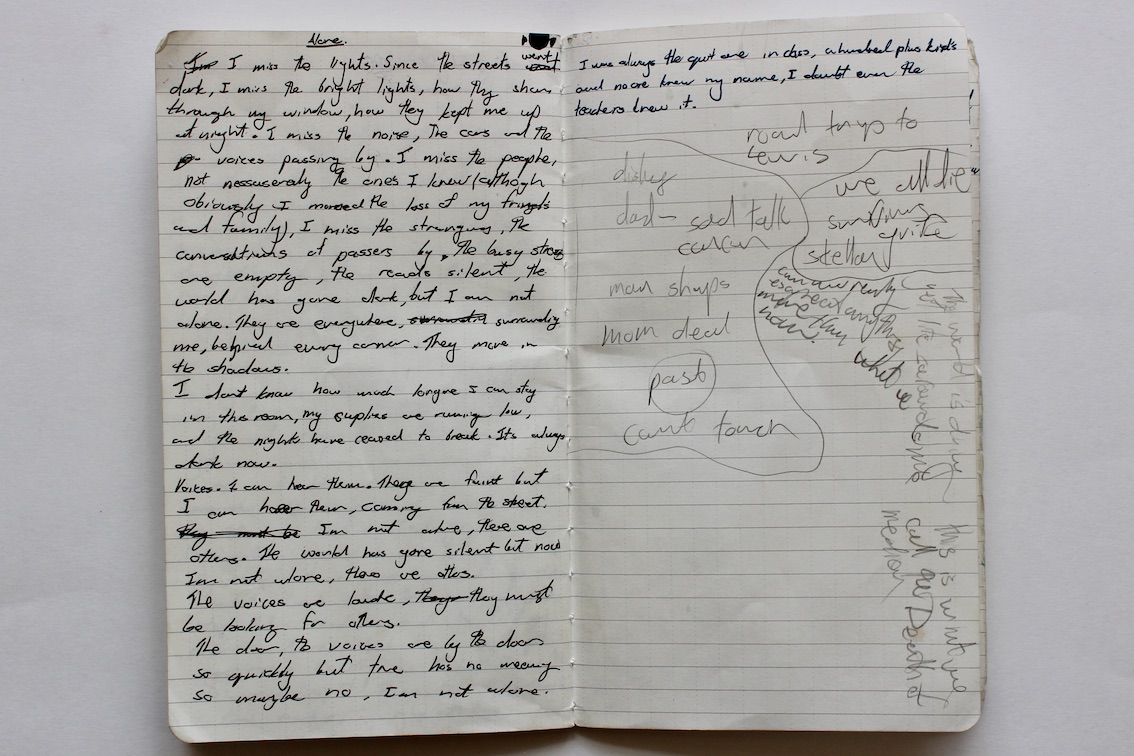 Alone.
I miss the lights. Since the streets went
dark, I miss the bright lights, how they shone
through my window, how they kept me up
at night. I miss the noise, The cars and the
voices passing by. I miss the people,
not nessuseraly the ones I knew (although
obiovusly I the loss of my
and family), I miss the strangers, the
conversations of passers by, the busy
are empty, the roads silent, the
world has gone dark, but I am not
alone. They are everywhere, surrounding
me, behind every corner. They move in
the shadows.
I dont know how much longre I can stay
in this room, my supplies are running low,
and the nights have ceased to break. Its always
dark now.
Voices. I can hear them. There are faint but
I can hear them, coming from the street.
They must be Im not alone, there are
others. The world has gone silent but now
Im not alone, there are others.
The voices are louder, they must
be looking for others.
The door, the voices are by the door
so quickly but time has no meaning
so maybe no, I am not alone.
I was always the quit one in class, a hundred plus kids
and noone knew my name, I doubt even the
teachers knew it.
road trip to
Lewis
we all die
quite
stellar
dad - sad talk
man shups
mom dead
past
cant touch
more than
The world is dying
this is
call Death